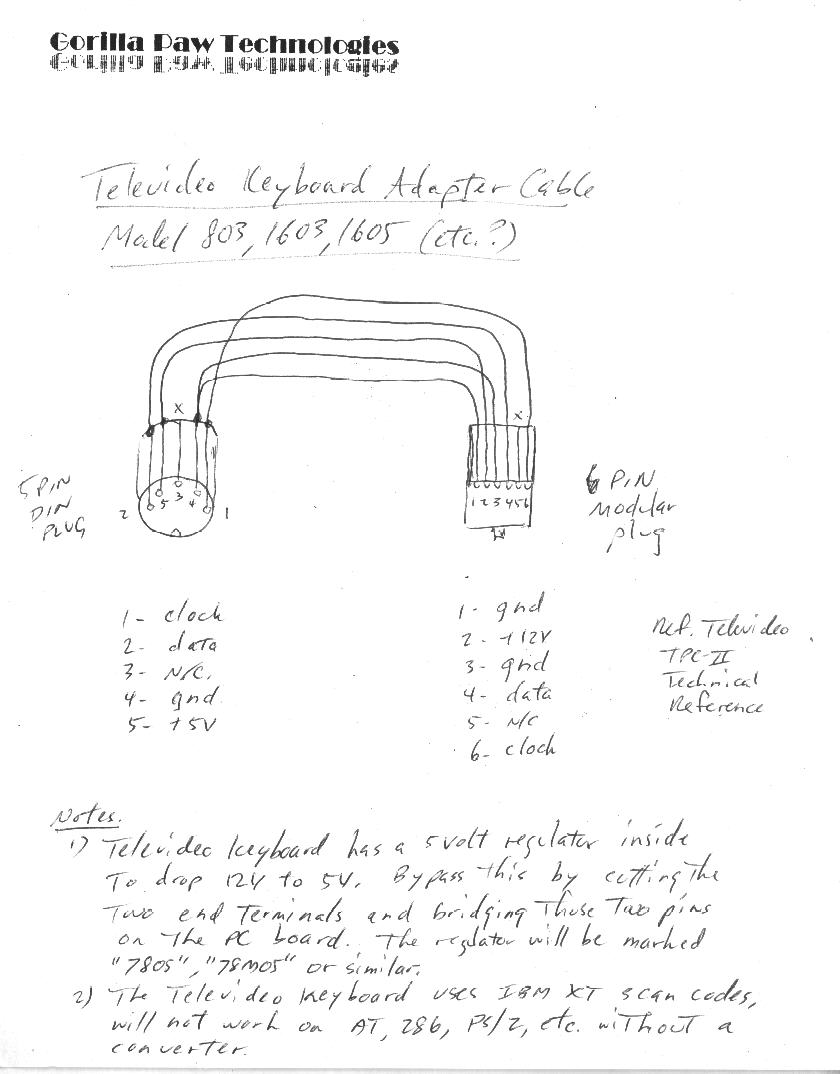 Gorilla Paw Technologies
Televideo Keyboard Adapter Cable
Model 803, 1603, 1605 (etc.?)
X
X
5 PIN
DIN
PLUG
2 5 3 4 1
1 2 3 4 5 6
6 PIN
Modular
plug
1- clock
2- data
3- N/C.
4- gnd
5- +5V
1- gnd
2- +12V
3- gnd
4- data
5- N/C
6- clock
Ref. Televideo
TPC-II
Technical
Reference
Notes.
1) Televideo keyboard has a 5 volt regulator inside
To drop 12V to 5V. Bypass this by cutting The
Two end Terminals and bridging Those Two pins
on The PC board. The regulator will be marked
"7805", "78M05" or similar.
2) The Televideo Keyboard uses IBM XT scan codes,
will not work on AT, 286, PS/2, etc. without a
converter.